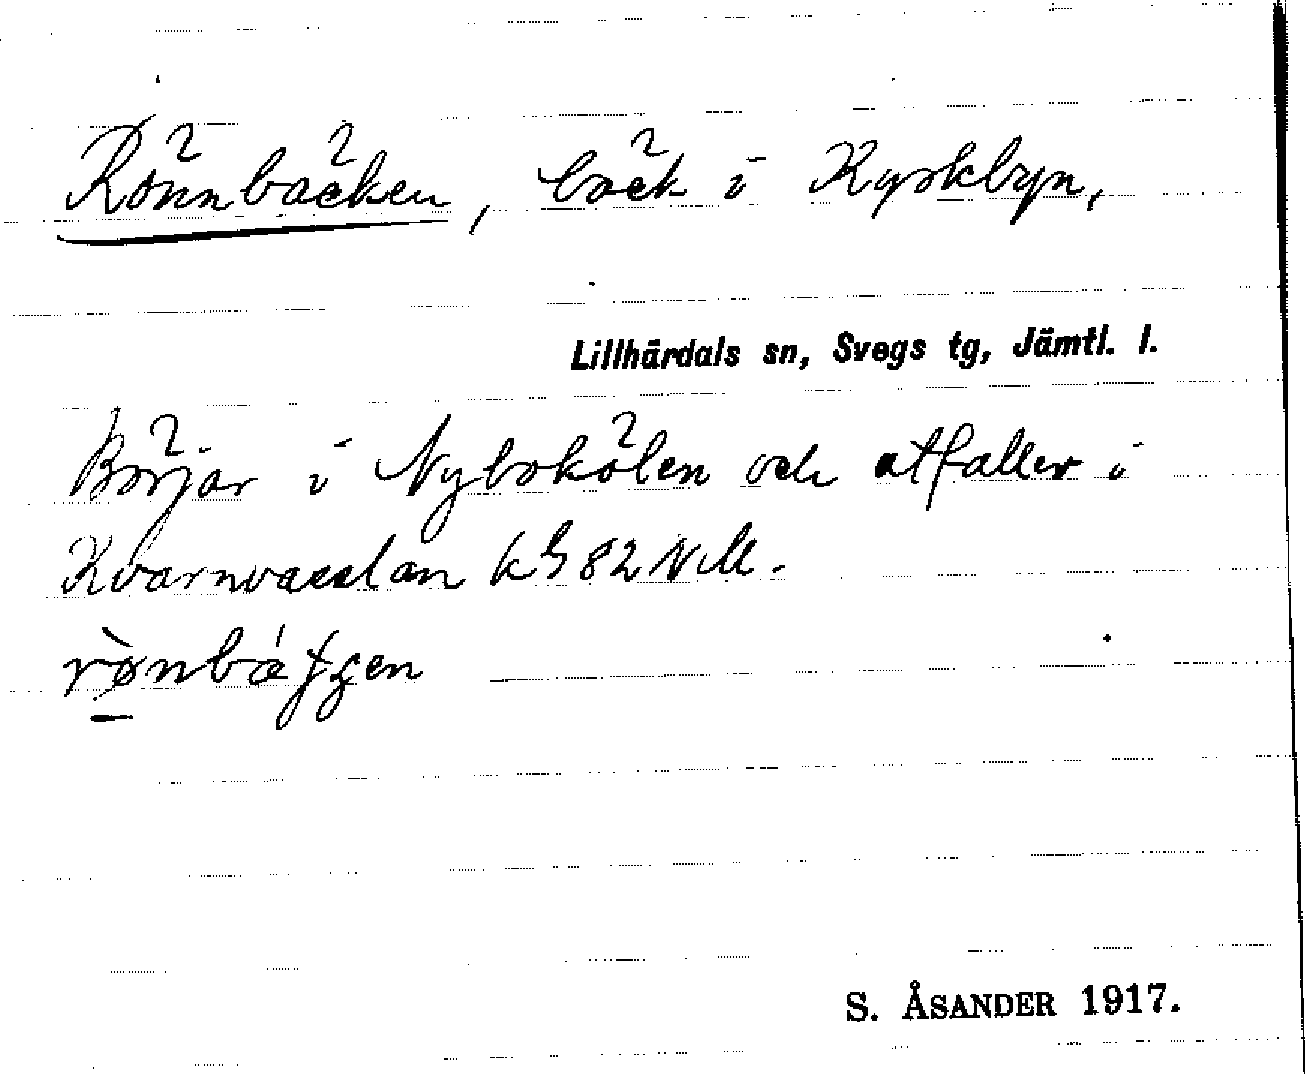 Rönnbäcken, bäck i Kyrkbyn,
Lillhärdals sn, Svegs tg, Jämtl. l.
Börjar i Nybokölen och utfaller i
Kvarnvasslan 82 N.M.
S. ÅSANDER 1917.